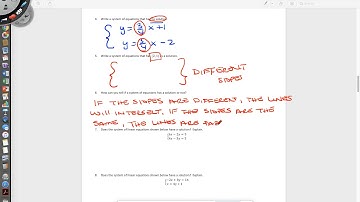 4. Write a system of equations that has no solution.
y = 3/4 x + 1
y = 3/4 x - 2
5. Write a system of equations that has a solution.
DIFFERENT
SLOPES
6. How can you tell if a system of equations has a solution or not?
IF THE SLOPES ARE DIFFERENT, THE LINES
WILL INTERSECT. IF THE SLOPES ARE THE
SAME, THE LINES ARE PAR
7. Does the system of linear equations shown below have a solution? Explain.
8. Does the system of linear equations shown below have a solution? Explain.